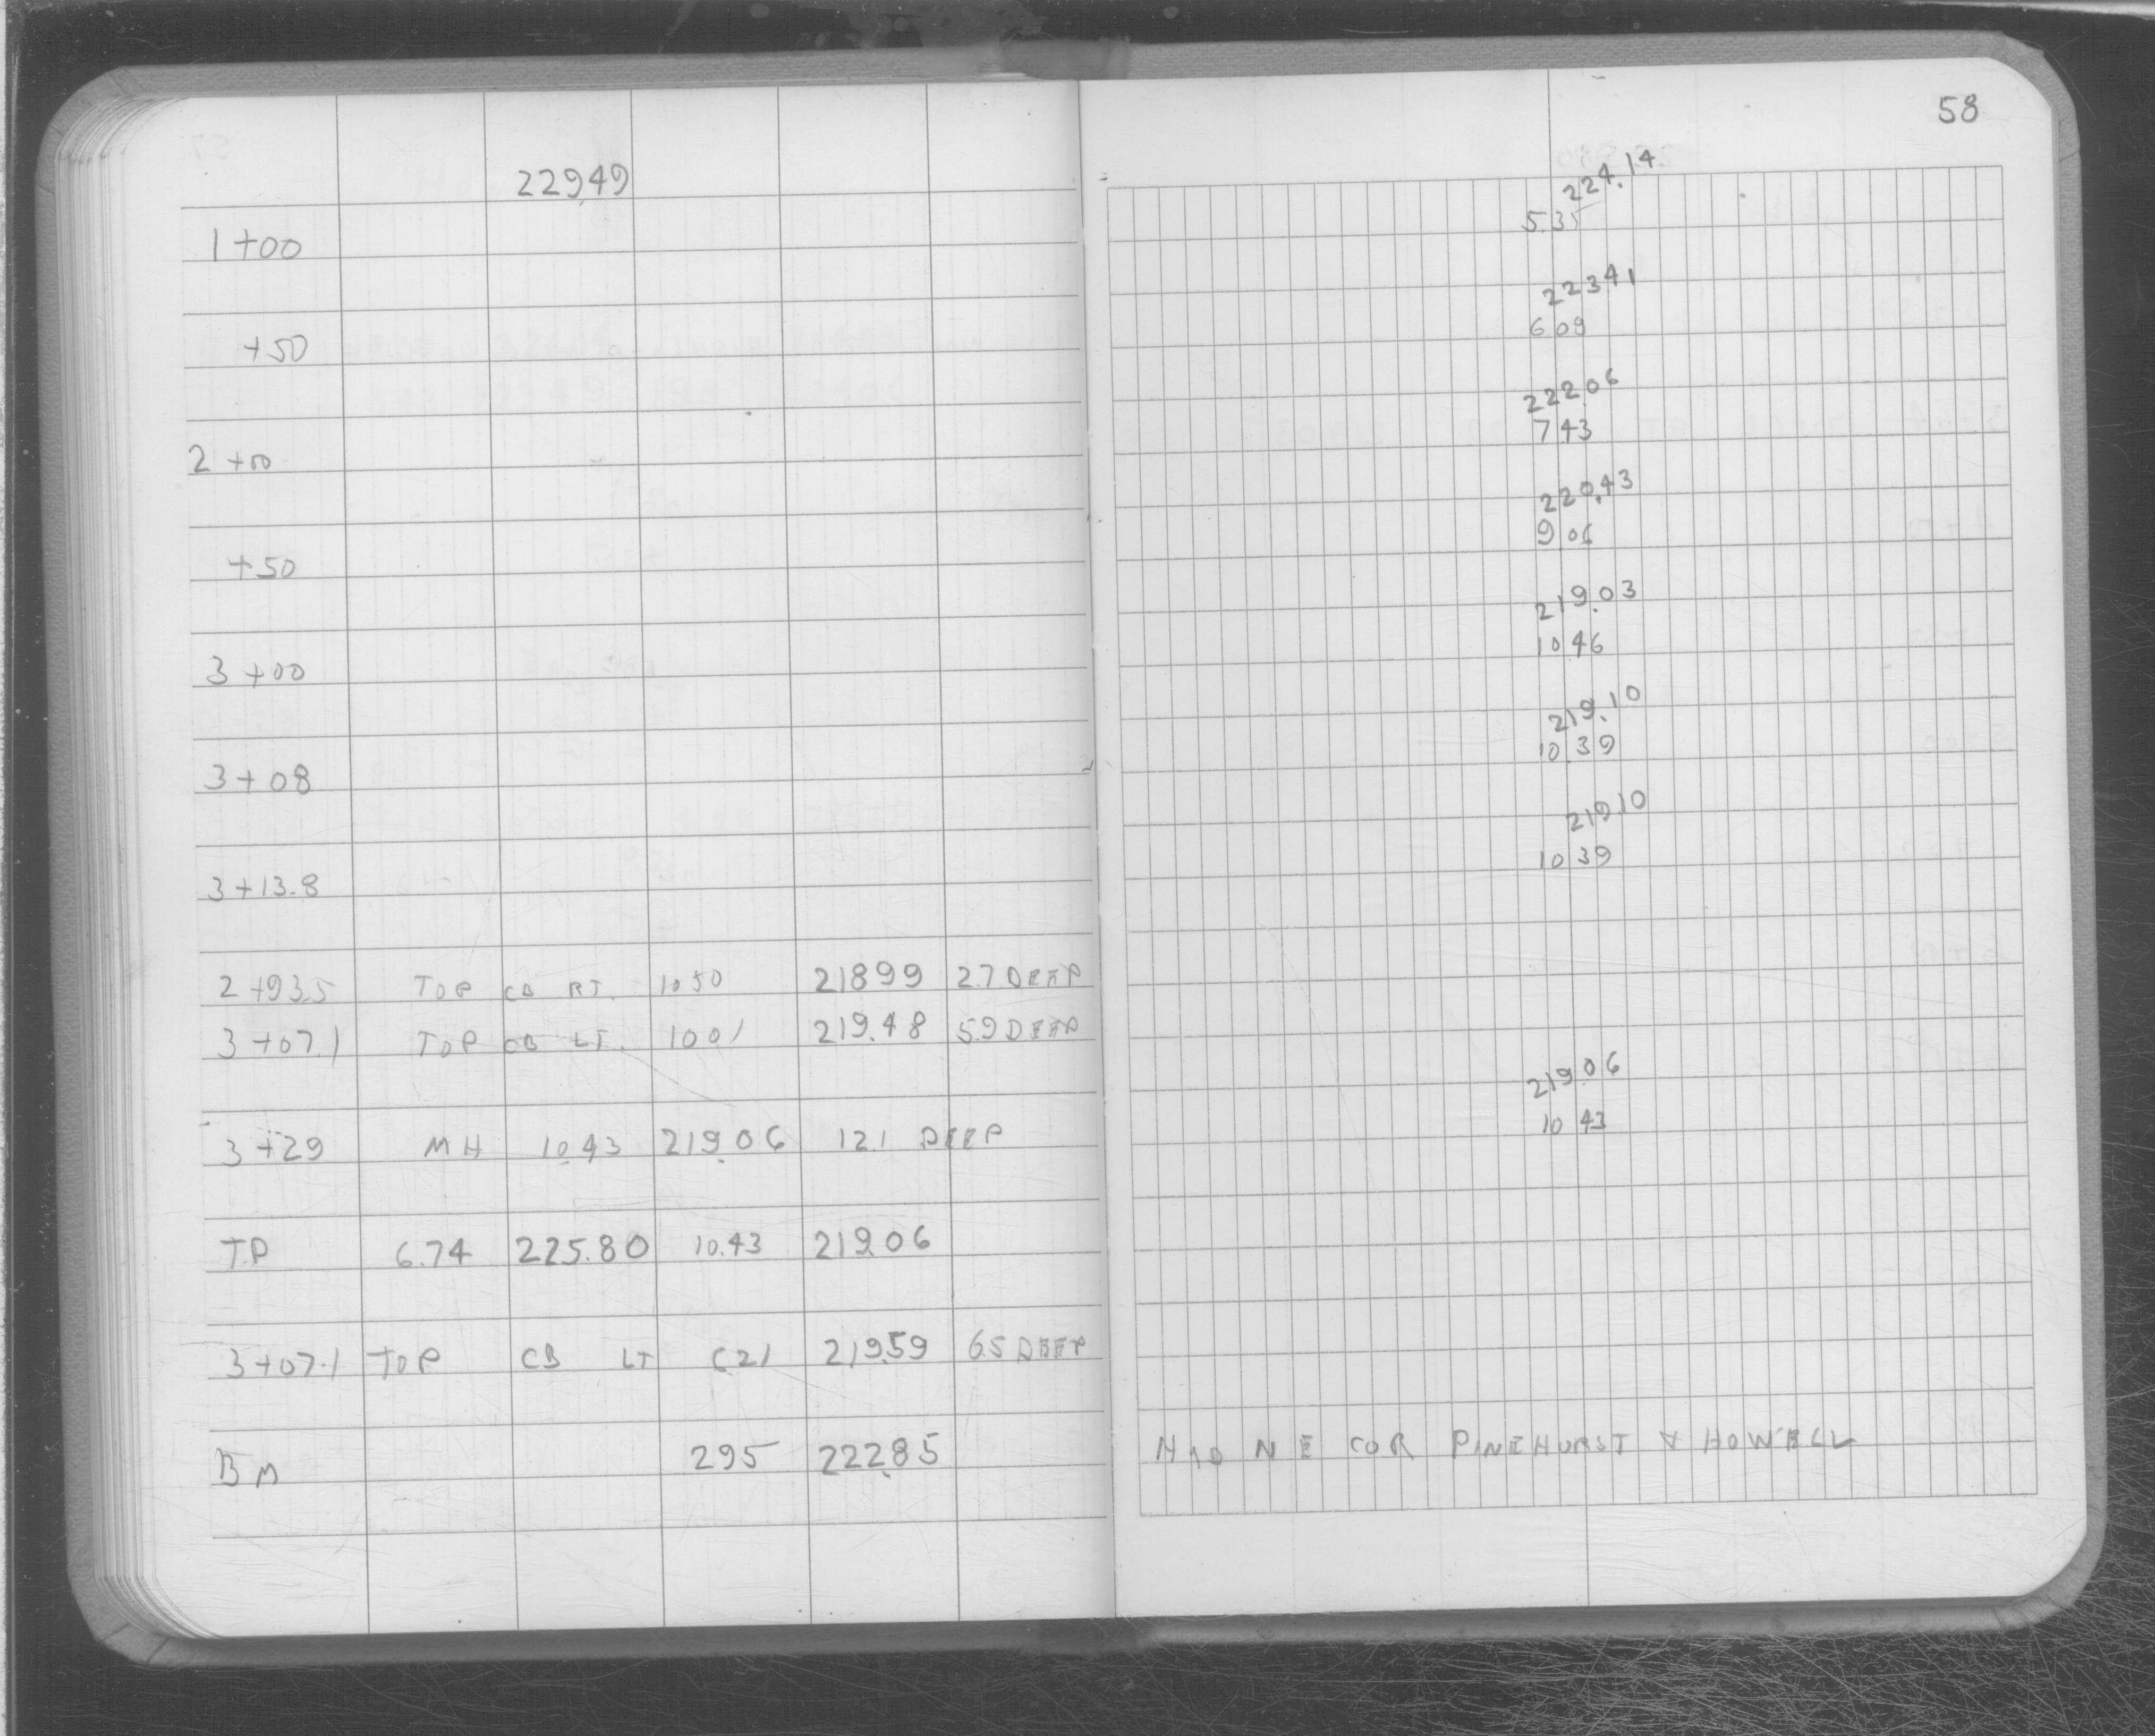 58
229.49
224.14
1+00 5.35
223 41
+50 6 09
222 06
2+00 7 43
220.43
+50 9 06
219.03
3+00 10 46
219.10
3+08 10 39
219 10
3+13.8 10 39
2+93.5 TOP CB RT. 10 50 218 99 2.7 DEEP
3+07.1 TOP CB LT. 10 01 219.48 5.9 DEEP
219 06
3+29 MH 10.43 219.06 12.1 DEEP 10 43
T.P 6.74 225.80 10.43 219.06
3+07.1 TOP CB LT 621 219.59 6.5 DEEP
BM 295 222.85 N E COR PINEHURST & HOWELL